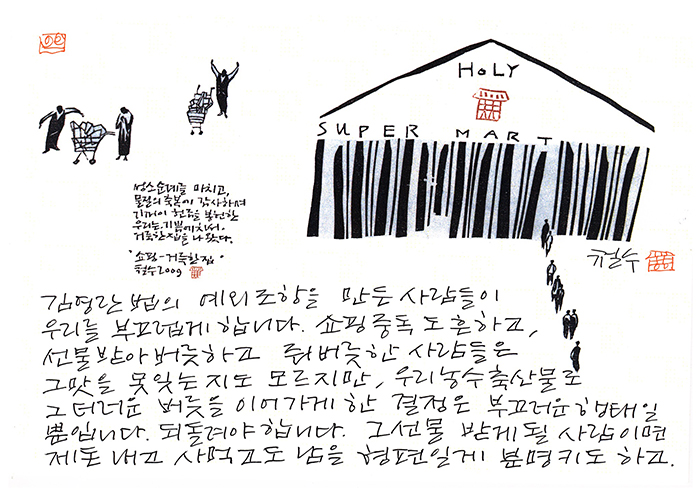 HOLY
SUPER MART
성소순례를 마치고,
물질의 축복에 감사하며
기꺼이 헌금을 봉헌한
우리는, 기쁨에 차서
거룩한 집을 나왔다.
"쇼핑-거룩한 집"
철수 2009
철수
김영란법의 예외조항을 만든 사람들이
우리를 부끄럽게 합니다. 쇼핑중독도 흔하고,
선물받아 버릇하고 줘버릇한 사람들은
그맛을 못잊는지도 모르지만, 우리농수축산물로
그 더러운 버릇을 이어가게 한 결정은 부끄러운 행태일
뿐입니다. 되돌려야 합니다. 그 선물 받게 될 사람이면
제돈 내고 사먹고도 남을 형편일게 분명키도 하고.